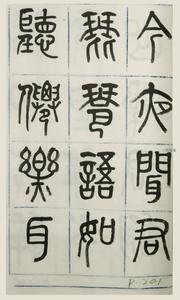 今夜聞君
琵琶語如
聽僊樂耳
P.201